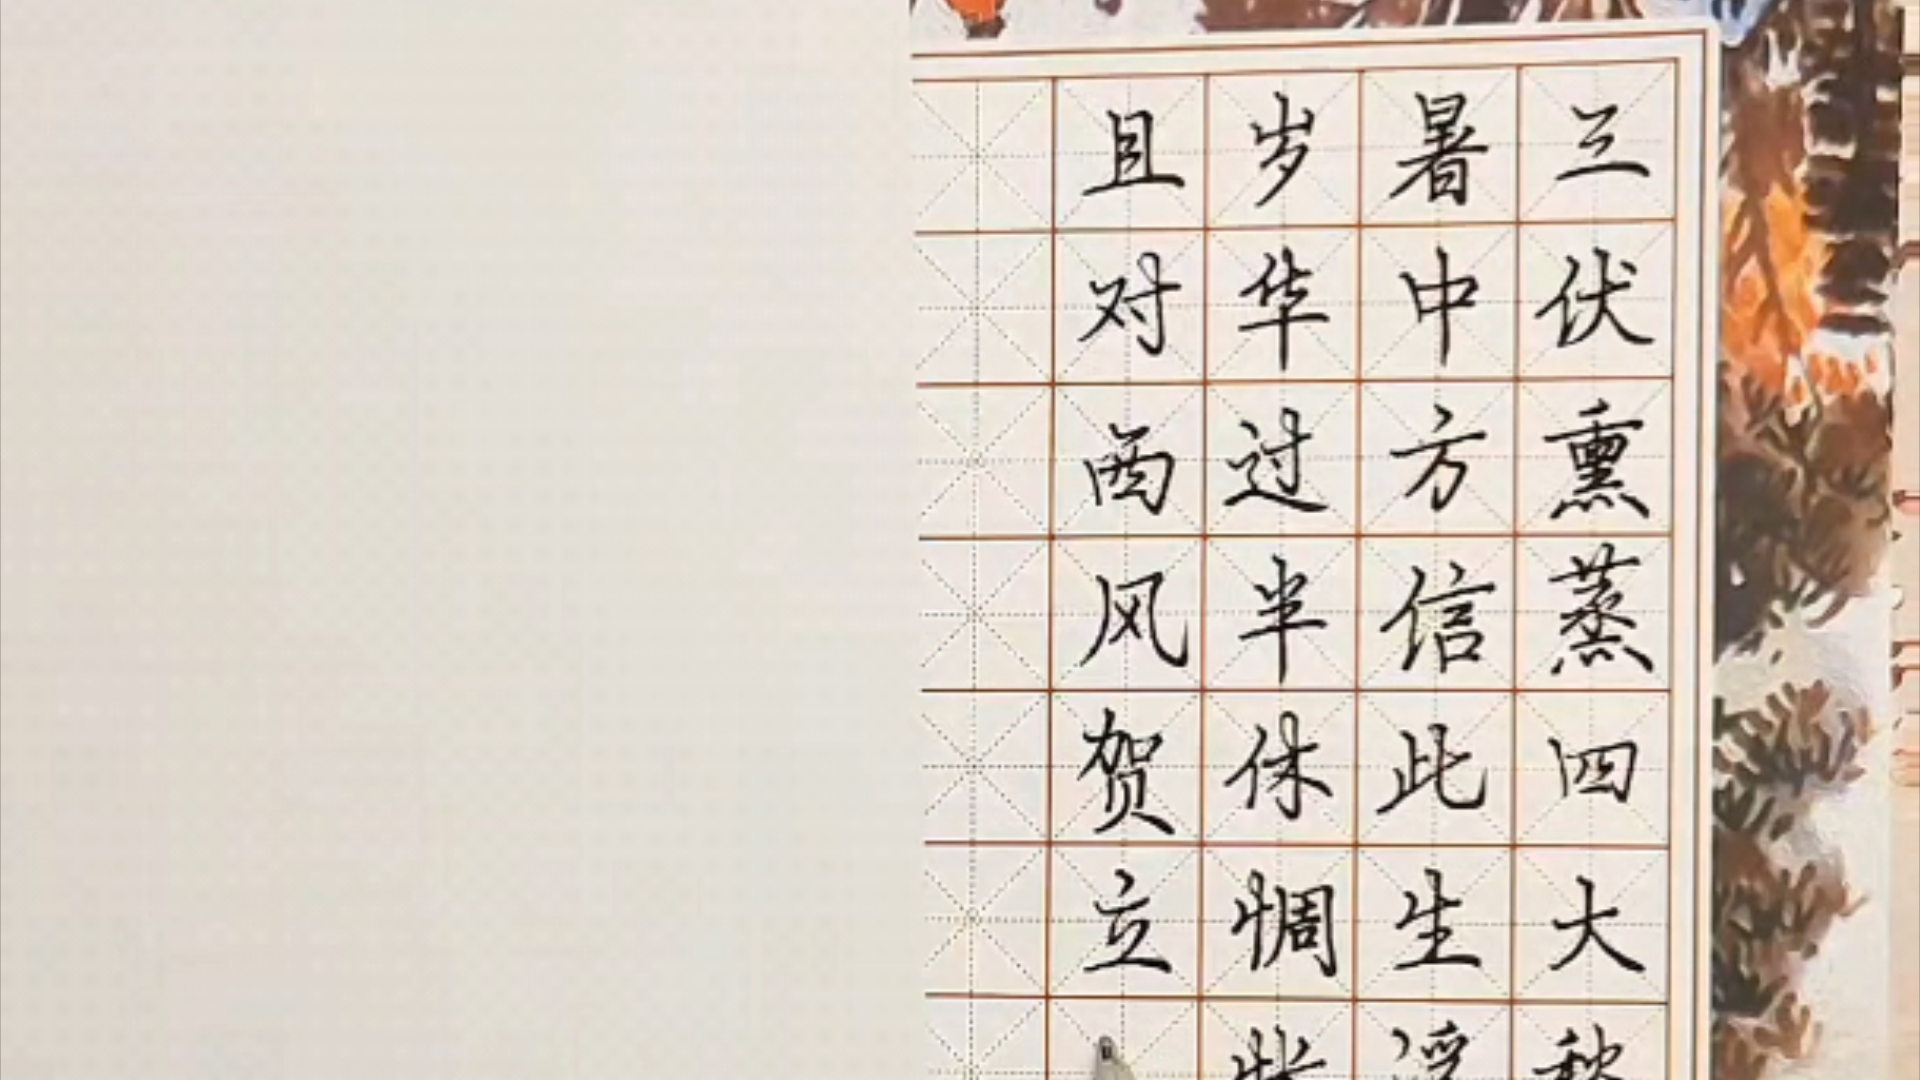 三伏熏蒸四大愁
暑中方信此生浮
岁华过半休惆怅
且对西风贺立